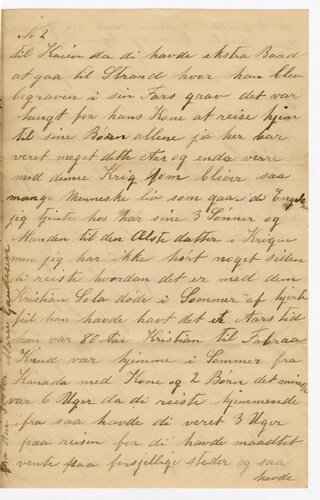 No 2
til Kaien da di havde ekstra Baad
at gaa til Strand hvor han blev
begraven i sin Fars grav det var
tungt for hans Kone at reise hjem
til sine Børn allene ja her har
veret meget dette Aar og enda verre
med denne Krig som bliver saa
mange Menneske liv som gaar di Engelske
jeg tjente hos har sine 3 Sønner og
Manden til den Elste datter i Krigen
men jeg har ikke hørt noget siden
di reiste hvordan det er med dem
Kristian Sola døde i Sommer af hjerte
feil han havde havt det et Aars tid
han var 80 Aar Kristian til
Knud var hjemme i Sommer fra
Kanada med Kone og 2 Børn det
var 6 Uger da di reiste hjemmende
fra saa havde di veret 3 Uger
paa reisen for di havde maadtet
vente paa forsjellige steder og saa
havde